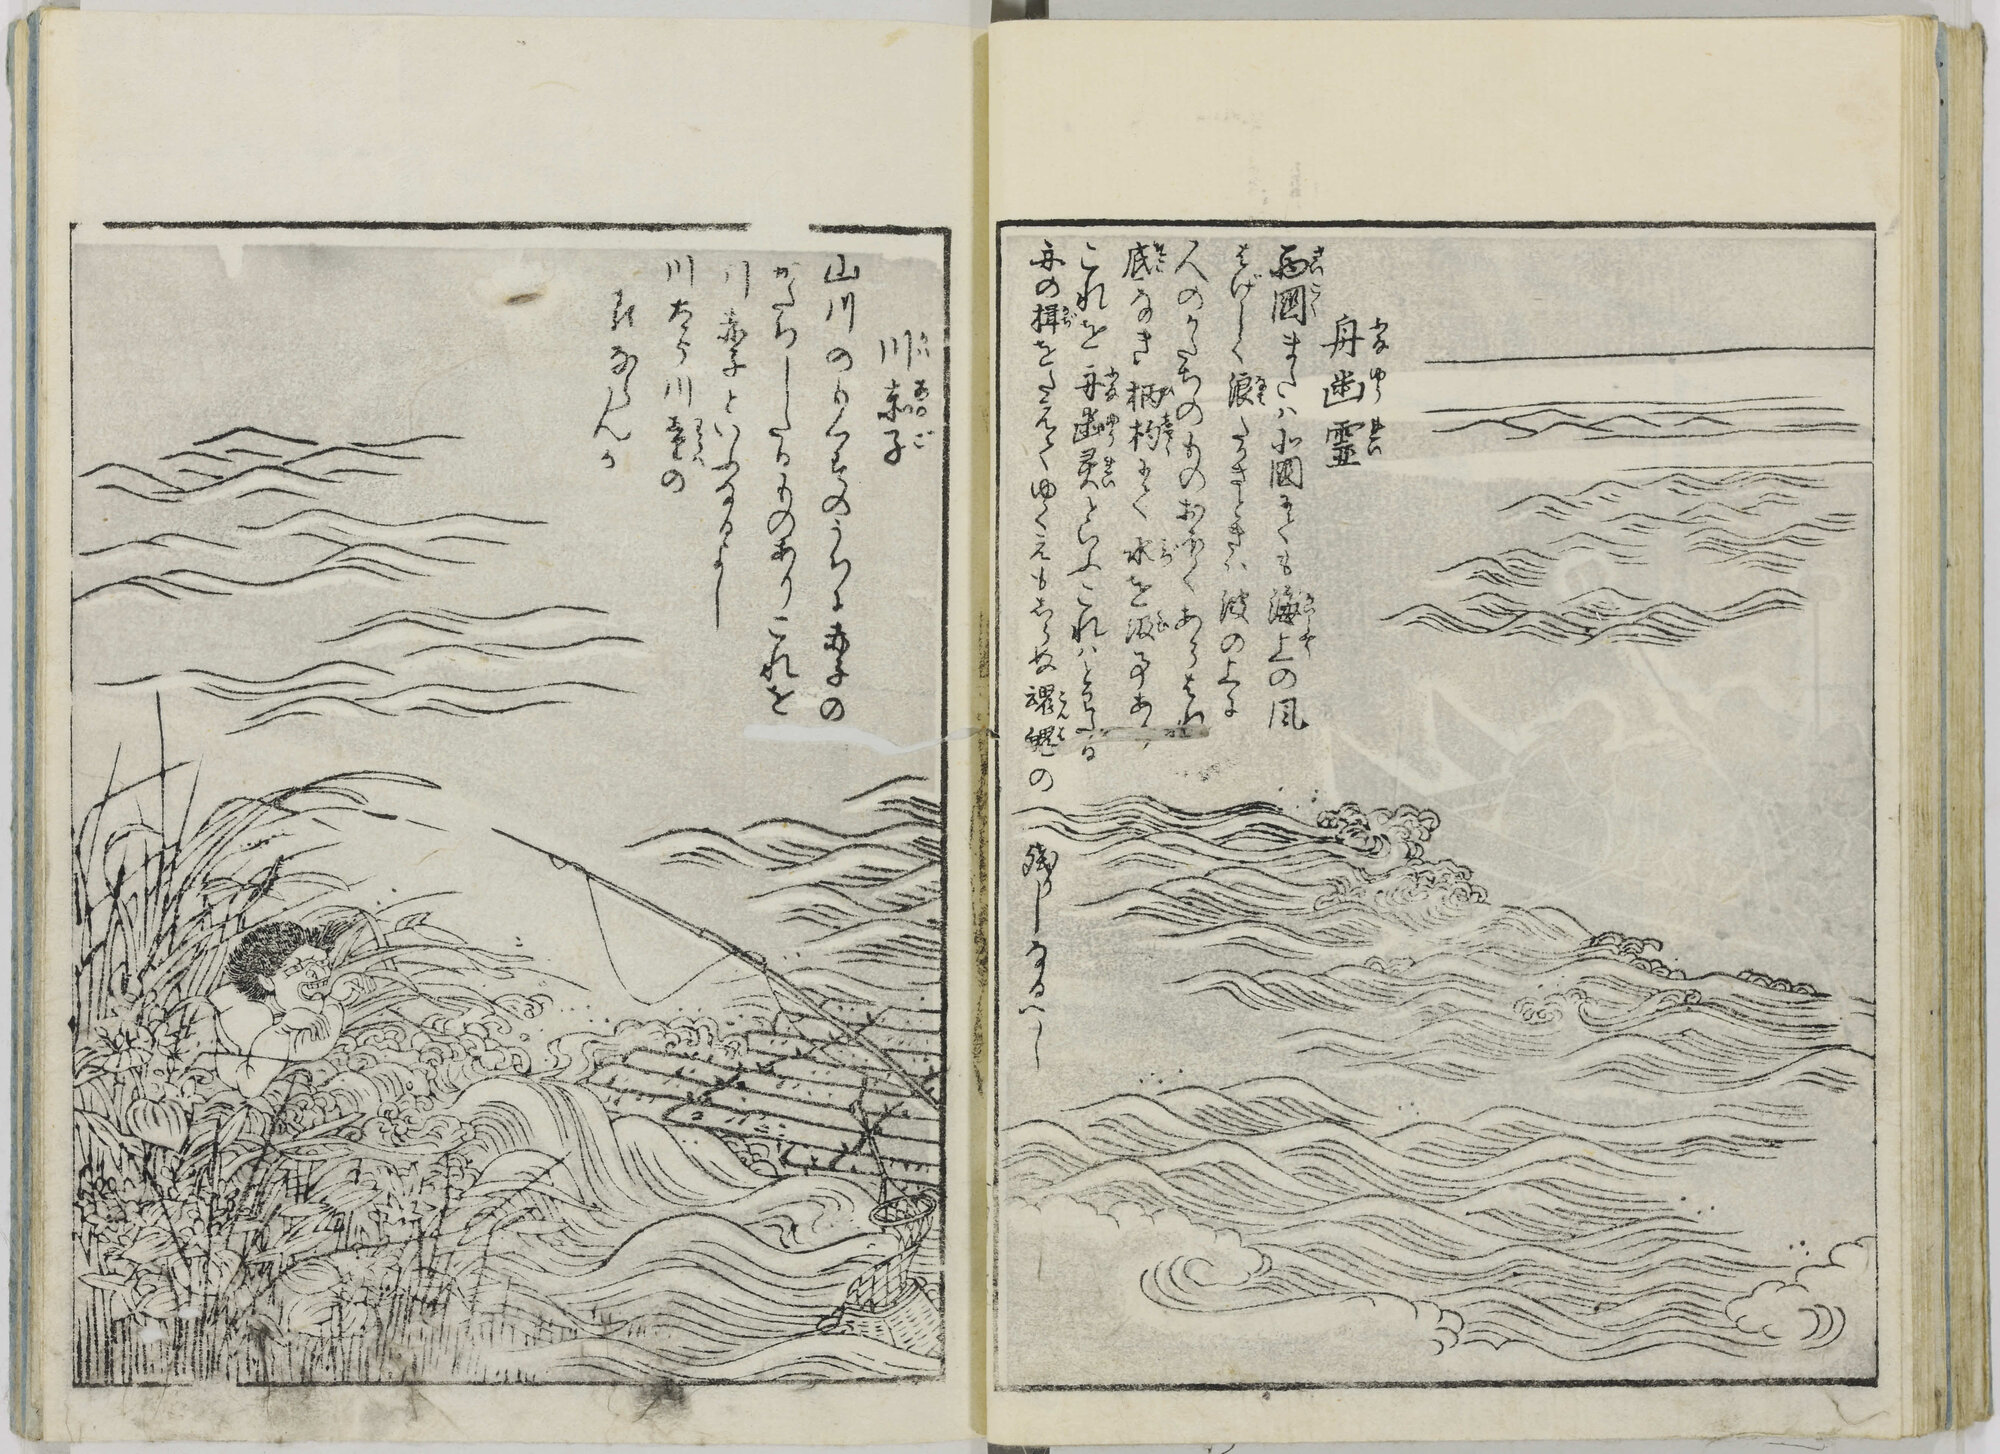 舟幽霊
西國または北國にても海上の風
はげしく浪たかきときは波の上に
人のかたちのものおほくあらはれ
底なき柄杓にて水を汲事あり
これを舟幽霊といふこれはとわたる
舟の楫をたえてゆくえもしらぬ魂魄の
残りしなるべし
川赤子
山川のもくずのうちに赤子の
かたちしたるものありこれを
川赤子といふなるよし
川太郎川童の
類ならんか